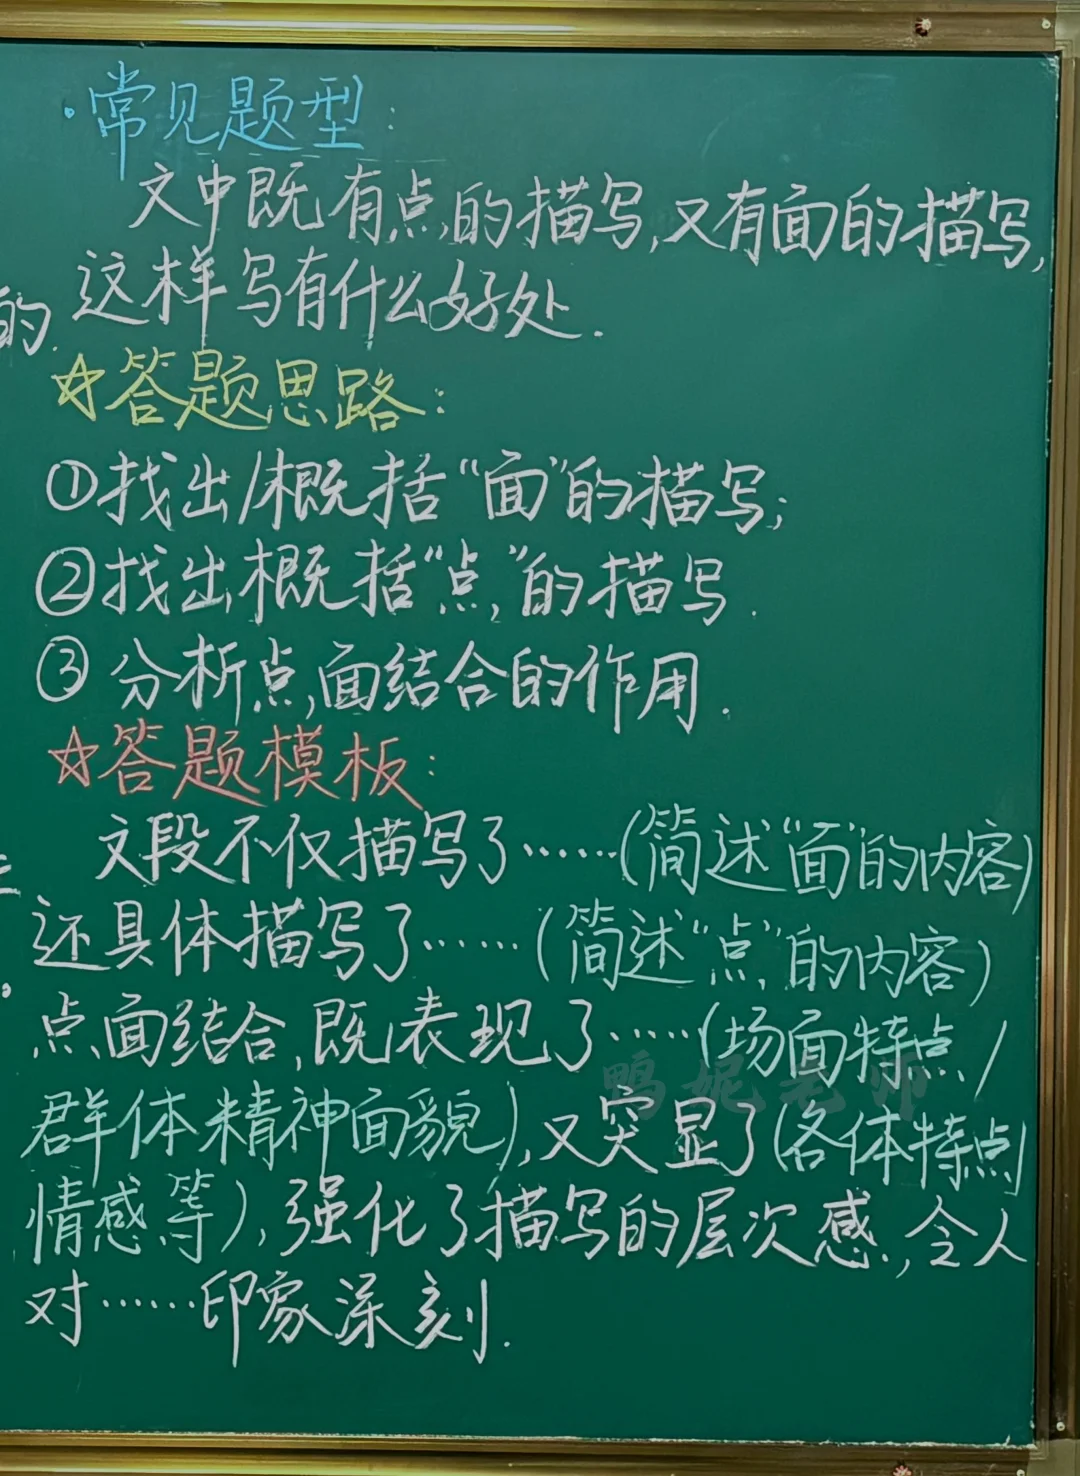 ·常见题型：
文中既有点的描写,又有面的描写,
这样写有什么好处.
的.
☆答题思路：
①找出/概括“面”的描写;
②找出概括“点”的描写.
③分析点面结合的作用.
☆答题模板：
文段不仅描写了……(简述“面”的内容)
还具体描写了……(简述“点”的内容)
点面结合,既表现了……(场面特点/
群体精神面貌),又突显了(各体特点/
情感等),强化了描写的层次感,令人
对……印象深刻.
鸭妮老师